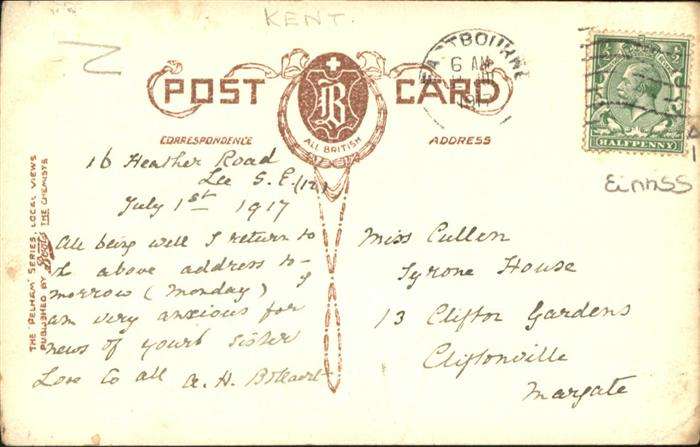 KENT.
EASTBOURNE
6 AM
POST CARD
B
ALL BRITISH
HALFPENNY
CORRESPONDENCE
ADDRESS
THE "PELHAM" SERIES, LOCAL VIEWS
PUBLISHED BY Boots THE CHEMISTS
16 Heather Road
Lee S.E. (12)
July 1st 1917
All being well I return to
the above address to-
morrow (Monday) I
am very anxious for
news of your sister
Love to all A. H.
Miss Cullen
Tyrone House
13 Clifton Gardens
Cliftonville
Margate